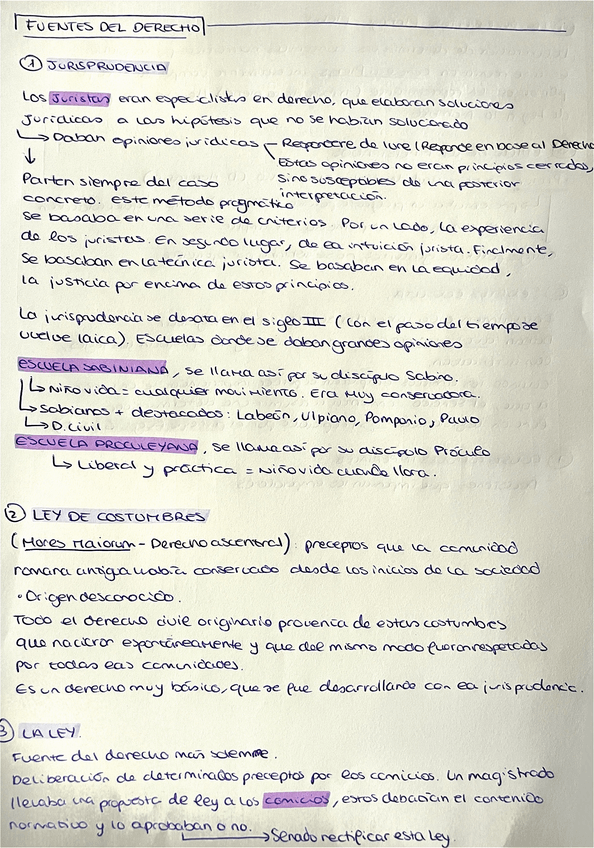 FUENTES DEL DERECHO
1 JURISPRUDENCIA
Los juristas eran especialistas en derecho, que elaboran soluciones
jurídicas a las hipótesis que no se habían solucionado
Daban opiniones jurídicas - Respondere de iure (Responde en base al Derecho
Estas opiniones no eran principios cerrados,
sino susceptibles de una posterior
interpretación.
Parten siempre del caso
concreto. Este método pragmático
se basaba en una serie de criterios. Por un lado, la experiencia
de los juristas. En segundo lugar, de la intuición jurista. Finalmente,
se basaban en la técnica jurista. Se basaban en la equidad,
la justicia por encima de estos principios.
La jurisprudencia se desata en el siglo III (con el paso del tiempo se
vuelve laica). Escuelas donde se daban grandes opiniones
ESCUELA SABINIANA, se llama así por su discípulo Sabino.
Niño vida = cualquier movimiento. Era muy conservadora.
Sabianos + destacados: Labeón, Ulpiano, Pomponio, Paulo
D. civil
ESCUELA PROCULEYANA, se llama así por su discípulo Próculo
Liberal y práctica = Niño vida cuando llora.
2 LEY DE COSTUMBRES
(Mores Maiorum - Derecho ascentral): preceptos que la comunidad
romana antigua había conservado desde los inicios de la sociedad
• Origen desconocido.
Todo el derecho civile originario provenia de estas costumbres
que nacieron espontáneamente y que del mismo modo fueron respetadas
por todas las comunidades.
Es un derecho muy básico, que se fue desarrollando con la jurisprudencia.
3 LA LEY.
Fuente del derecho más solemne.
Deliberación de determinados preceptos por los comicios. Un magistrado
llevaba una propuesta de ley a los comicios, estos debatían el contenido
normativo y lo aprobaban o no.
Senado rectificar esta ley.